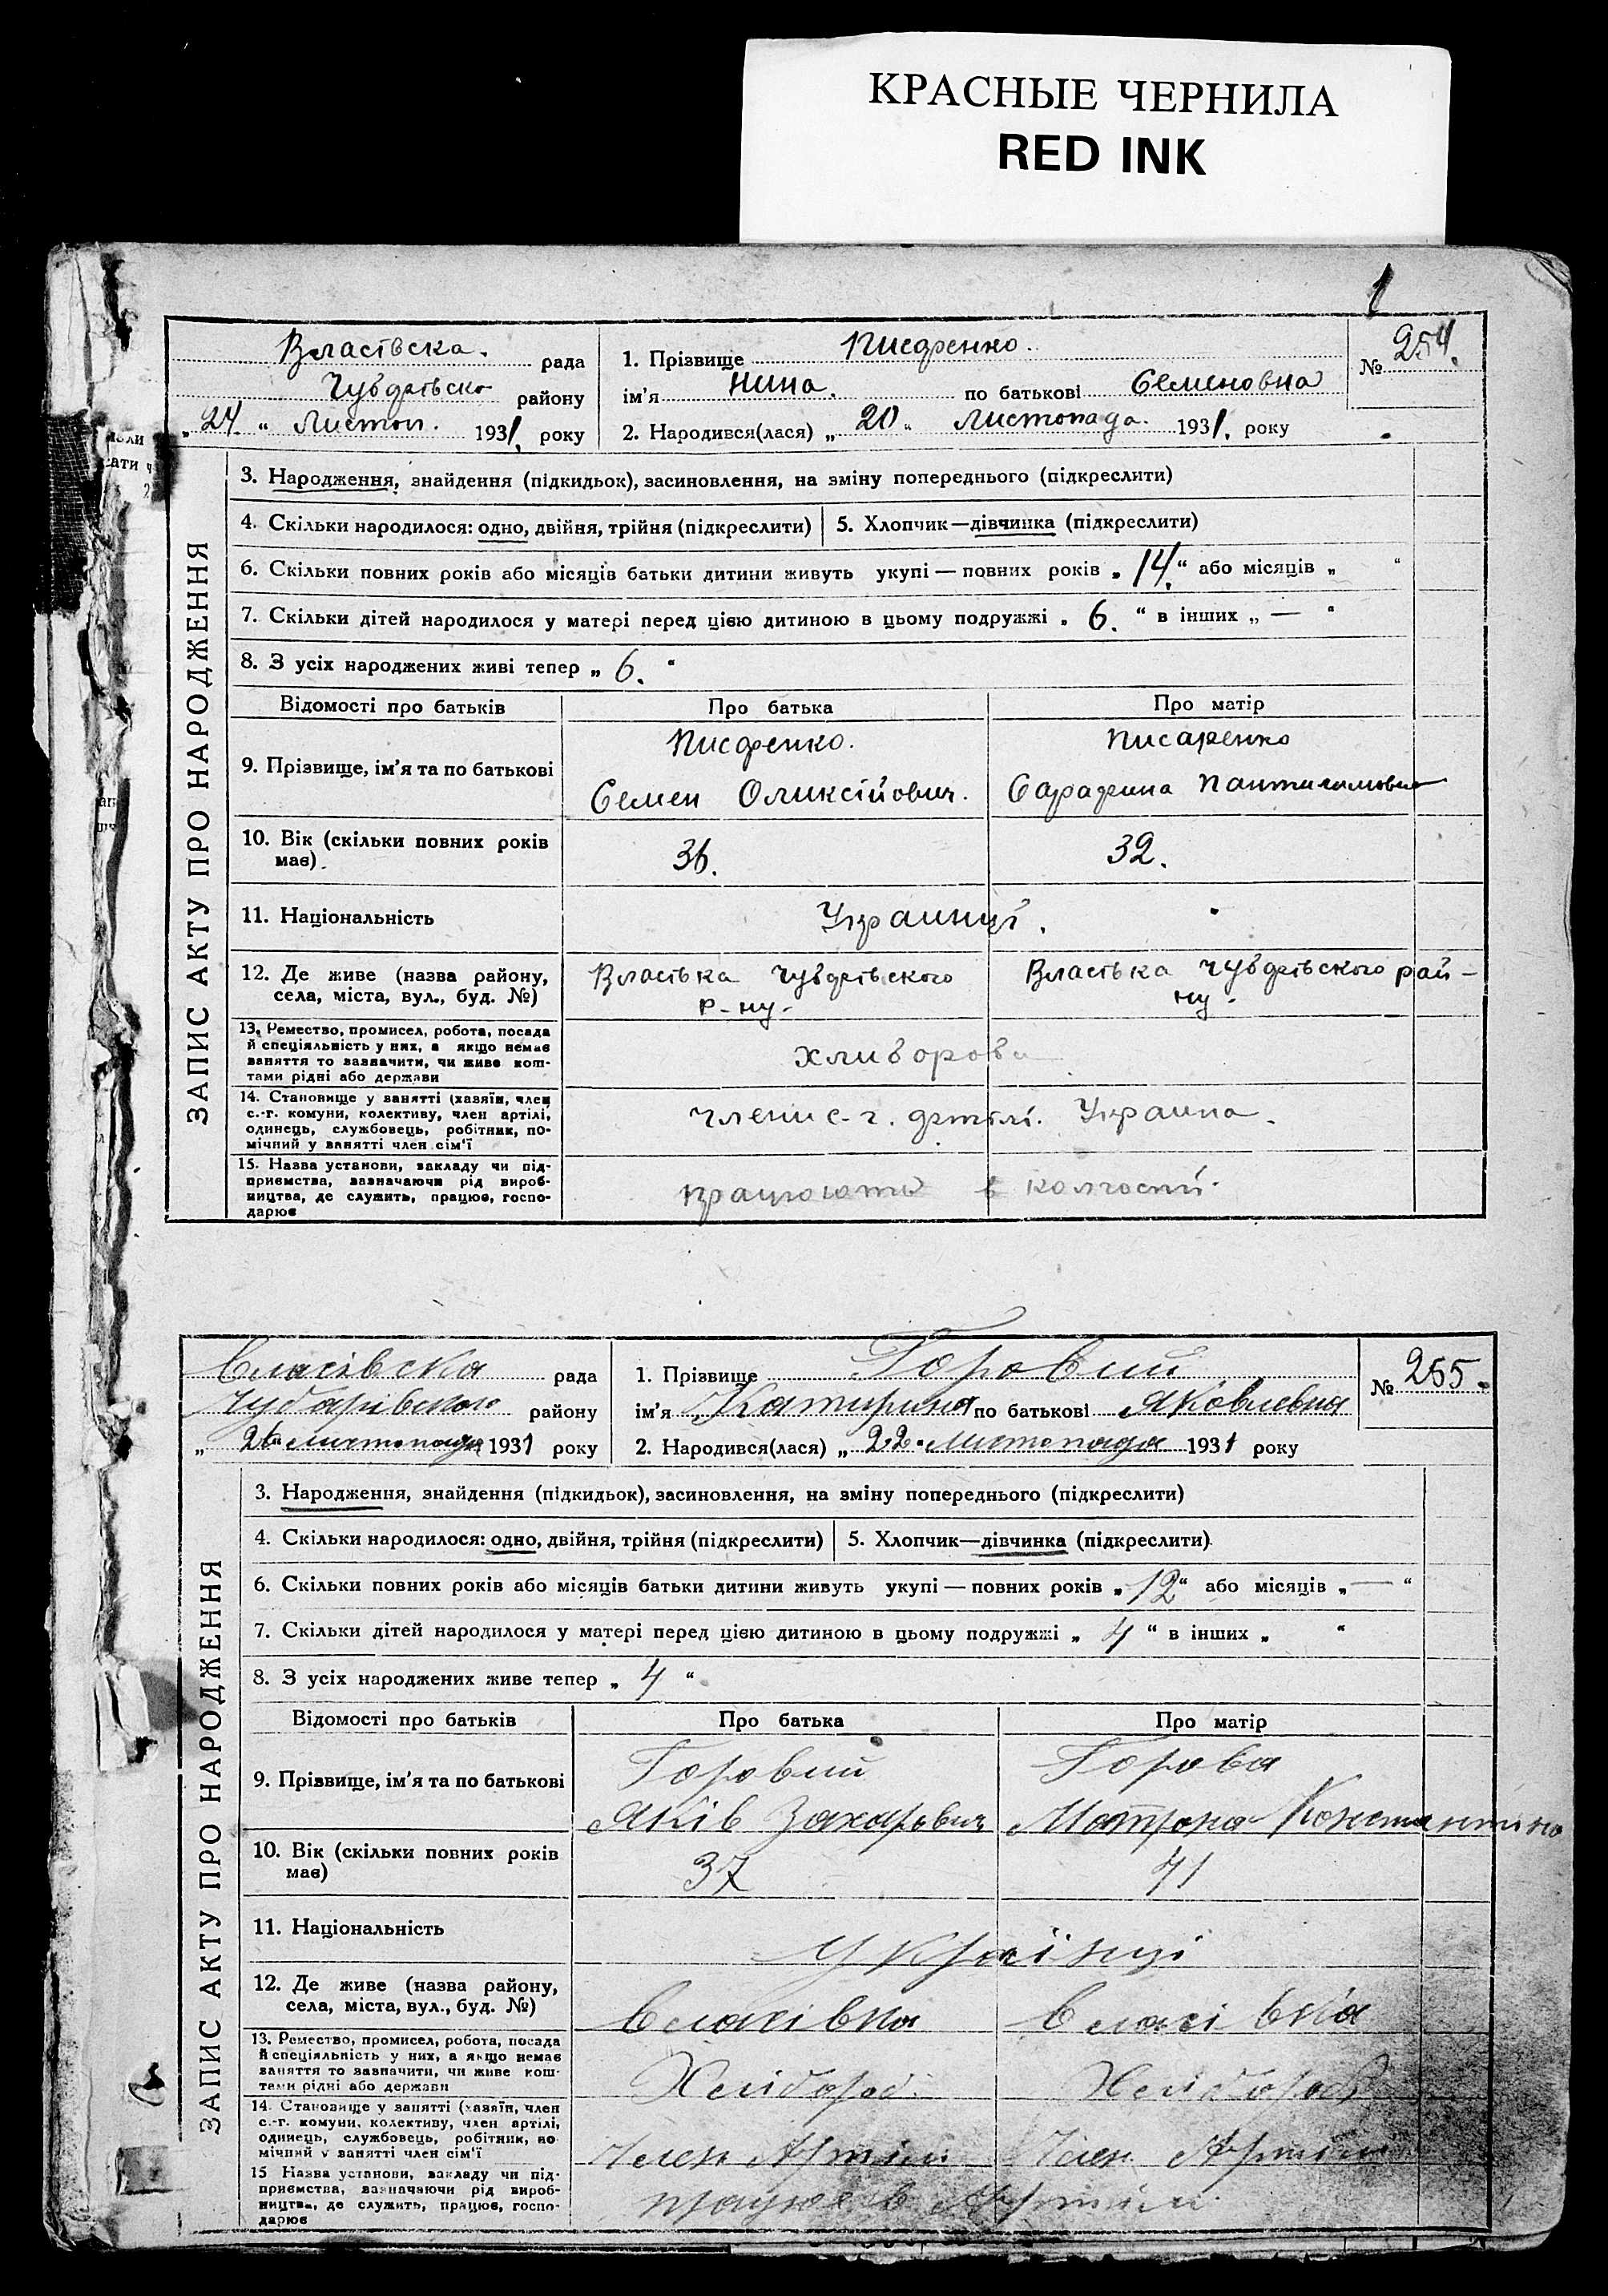 КРАСНЫЕ ЧЕРНИЛА
RED INK
1
Власівска. рада
Чубарівско району
„ 24. “ Листоп. 1931. року
1. Прізвище Писаренко.
ім’я Нина. по батькові Семеновна
2. Народився(лася) „ 20 “ Листопада. 1931. року
№ 254.
ЗАПИС АКТУ ПРО НАРОДЖЕННЯ
3. Народження, знайдення (підкидьок), засиновлення, на зміну попереднього (підкреслити)
4. Скільки народилося: одно, двійня, трійня (підкреслити) 5. Хлопчик—дівчинка (підкреслити)
6. Скільки повних років або місяців батьки дитини живуть укупі — повних років „ 14. “ або місяців „ “
7. Скільки дітей народилося у матері перед цією дитиною в цьому подружжі „ 6. “ в інших „ — “
8. З усіх народжених живі тепер „ 6. “
Відомості про батьків Про батька Про матір
9. Прізвище, ім’я та по батькові
Писаренко.
Семен Оликсійович.
Писаренко
Сарафина
10. Вік (скільки повних років
має)
36.
32.
11. Національність
Украинці.
12. Де живе (назва району,
села, міста, вул., буд. №)
Власівка Чубарівского
р-ну-
Власівка Чубарівского рай-
ну-
13. Ремество, промисел, робота, посада
й спеціяльність у них, а якщо немає
заняття то зазначити, чи живе кош-
тами рідні або держави
хлибороби
14. Становище у занятті (хазяїн, член
с.-г. комуни, колективу, член артілі,
одинець, службовець, робітник, по-
мічний у занятті член сім’ї
члени с-г. артілі. Украина.
15. Назва установи, закладу чи під-
приємства, зазначаючи рід вироб-
ництва, де служить, працює, госпо-
дарює
працюють в колгоспі.
Власівска рада
Чубарівского району
„ 26 “ листопада 1931 року
1. Прізвище Горовий
ім’я Катирина по батькові Яковлевна
2. Народився(лася) „ 22 “ Листопада 1931 року
№ 255.
ЗАПИС АКТУ ПРО НАРОДЖЕННЯ
3. Народження, знайдення (підкидьок), засиновлення, на зміну попереднього (підкреслити)
4. Скільки народилося: одно, двійня, трійня (підкреслити) 5. Хлопчик—дівчинка (підкреслити)
6. Скільки повних років або місяців батьки дитини живуть укупі — повних років „ 12 “ або місяців „ — “
7. Скільки дітей народилося у матері перед цією дитиною в цьому подружжі „ 4 “ в інших „ “
8. З усіх народжених живе тепер „ 4 “
Відомості про батьків Про батька Про матір
9. Прізвище, ім’я та по батькові
Горовий
Яків Захарович
Горова
Мотрона Константино
10. Вік (скільки повних років
має)
37
41
11. Національність
Українці
12. Де живе (назва району,
села, міста, вул., буд. №)
Власівка
Власівка
13. Ремество, промисел, робота, посада
й спеціяльність у них, а якщо немає
заняття то зазначити, чи живе кош-
тами рідні або держави
Хлібороб
Хлібороб
14. Становище у занятті (хазяїн, член
с.-г. комуни, колективу, член артілі,
одинець, службовець, робітник, по-
мічний у занятті член сім’ї
Член Артіли
Член Артіли
15 Назва установи, закладу чи під-
приємства, зазначаючи рід вироб-
ництва, де служить, працює, госпо-
дарює
працює в Артіли